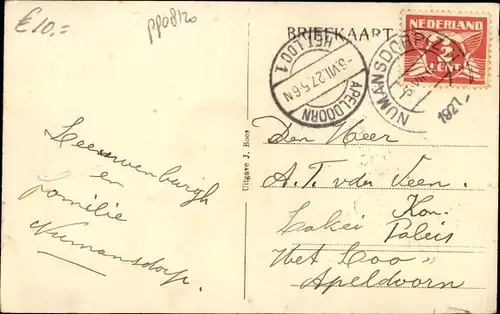 £ 10.=
pp08120
BRIEFKAART
NEDERLAND
2
CENT
APELDOORN
-6.VII.27.5-6N
HET LOO 1
NUMANSDORP
1927
Den Heer
A. T. v der Veen.
Lakei Kon.
Paleis
Het Loo
Apeldoorn
Leeuwenburgh
en
familie
Numansdorp.
Uitgave J. Boos